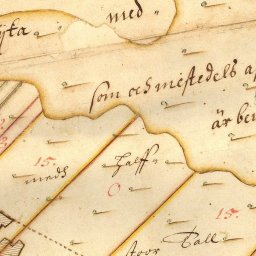 med
som och mestedels
är be
15.
medh
halff
0
15.
stoor Tall